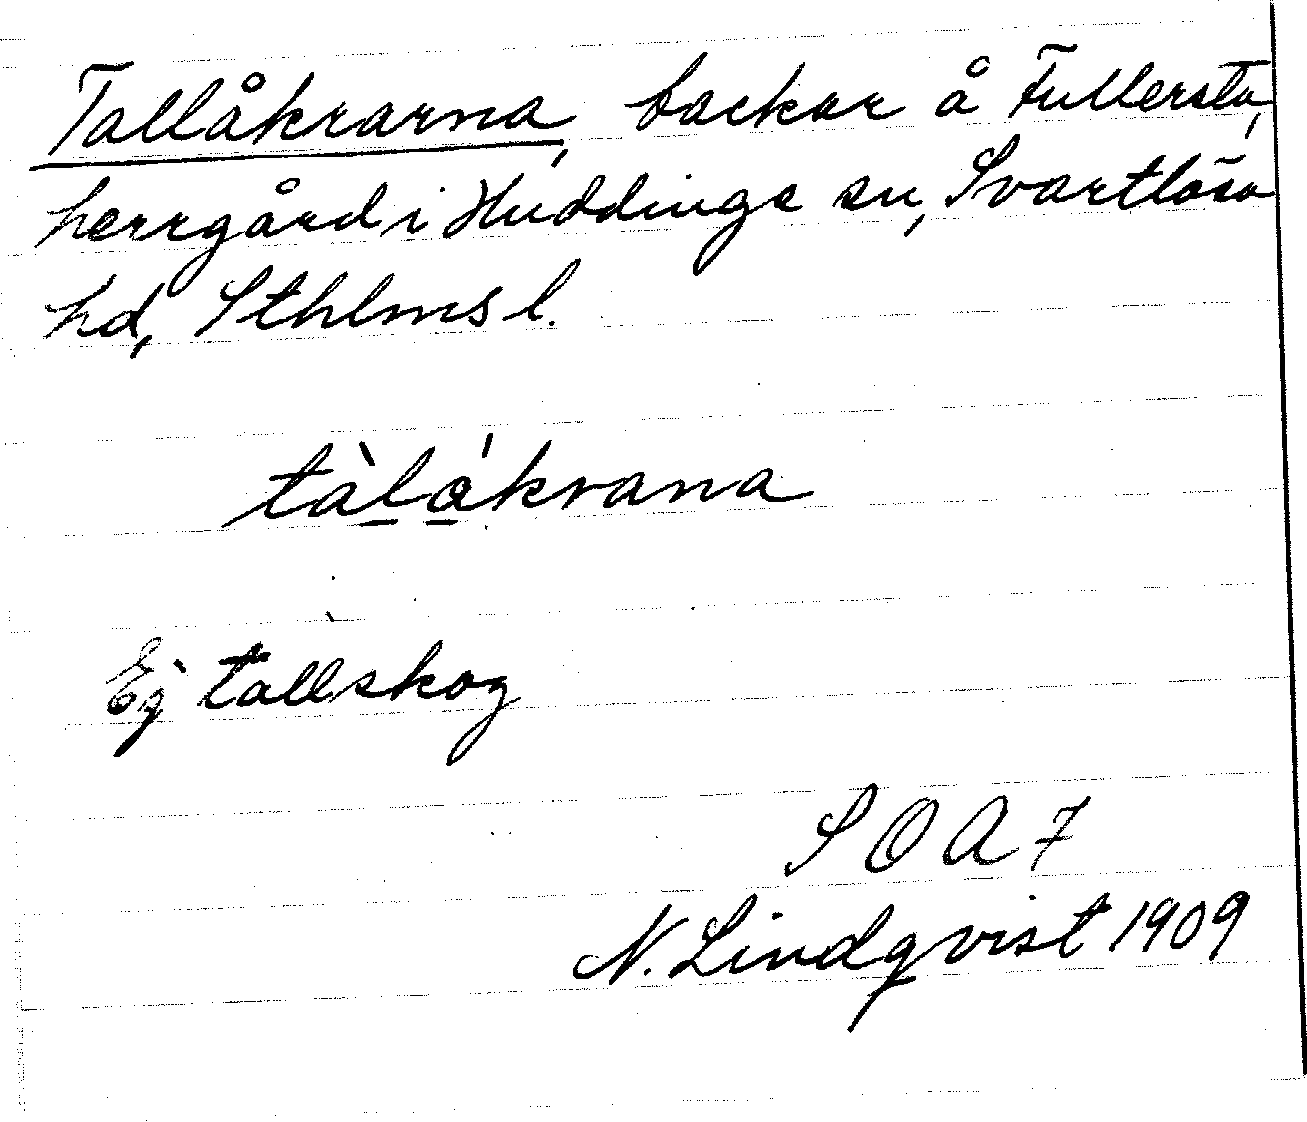 Tallåkrarna, backar å Fullersta,
herrgård i Huddinge sn, Svartlösa
hd, Sthlms l.
tàlåkrana
Ej tallskog
SOA 7
N. Lindqvist 1909